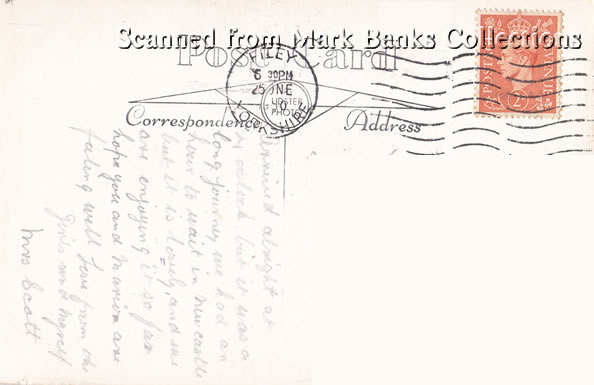 Scanned from Mark Banks Collections
Post Card
FILEY
6 30PM
25 JNE
YORKSHIRE
POSTAGE
REVENUE
Correspondence
Address
Arrived alright at
o'clock but it was a
long journey we had an
hour to wait in newcastle
but it is lovely, and we
are enjoying it so far
hope you and Marion are
feeling well Love from the
girls and myself
Mrs Scott